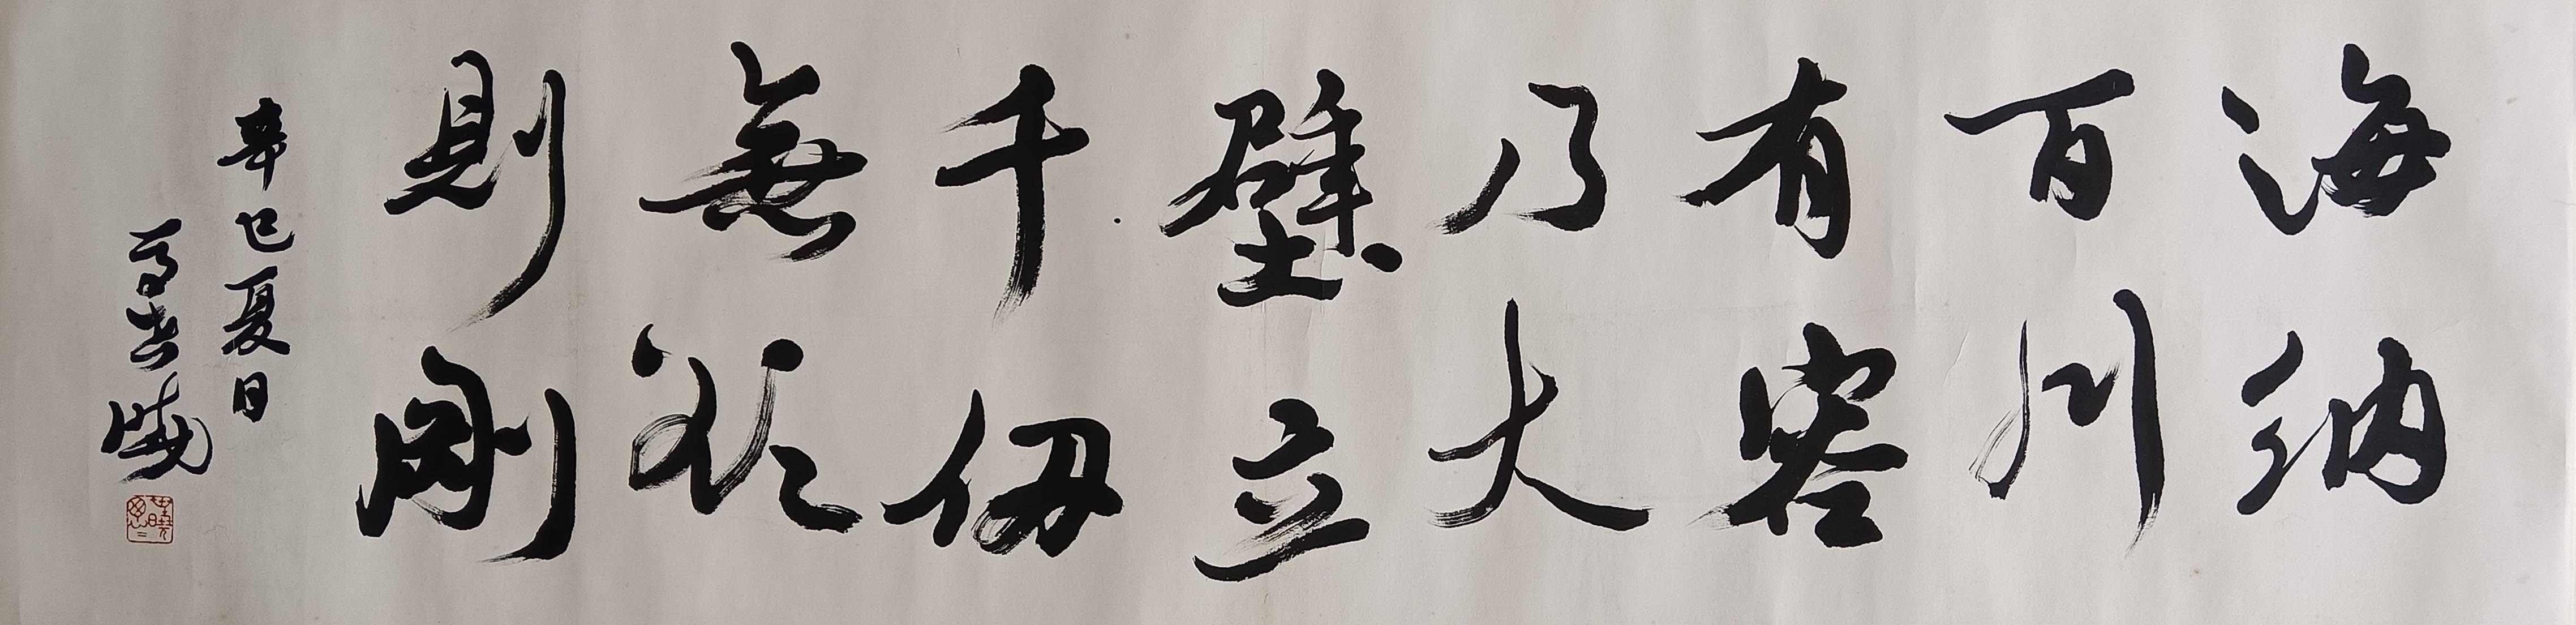 海納
百川
有容
乃大
壁立
千仞
無欲
則剛
辛巳夏日